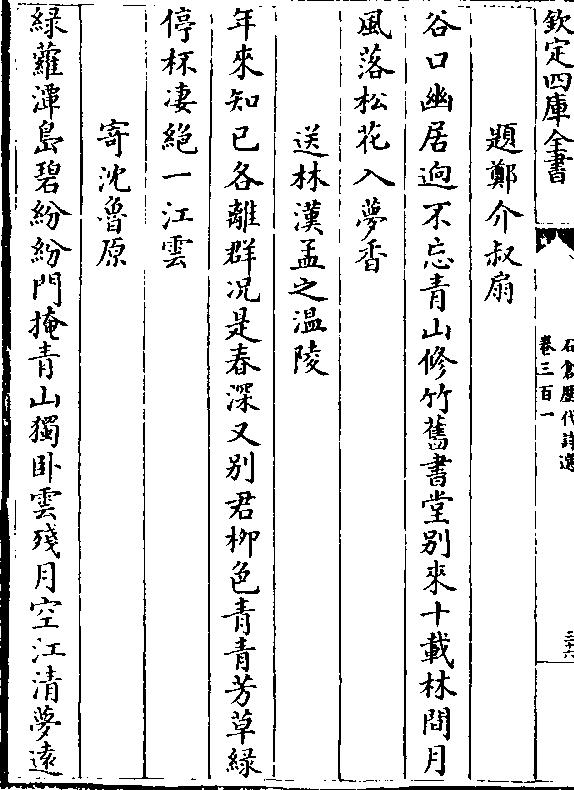 欽定四庫全書
石倉歷代詩選
卷三百一
三十六
題鄭介叔扇
谷口幽居逈不忘青山修竹舊書堂别來十載林間月
風落松花入夢香
送林漢孟之温陵
年來知已各離群况是春深又别君柳色青青芳草緑
停杯凄絶一江雲
寄沈魯原
緑蘿潭島碧紛紛門掩青山獨卧雲殘月空江清夢遠